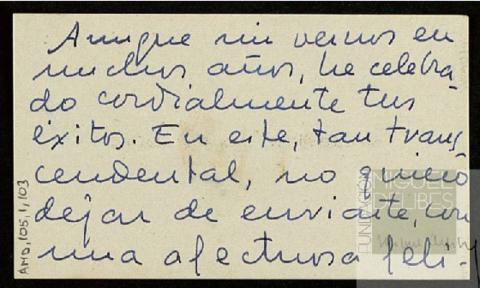 Aunque sin vernos en
muchos años, he celebra
do cordialmente tus
éxitos. En este, tan trans
cendental, no quiero
dejar de enviarte, con
una afectuosa feli-
AMD,105,1,103
FUNDACIÓN
MIGUEL
DELIBES